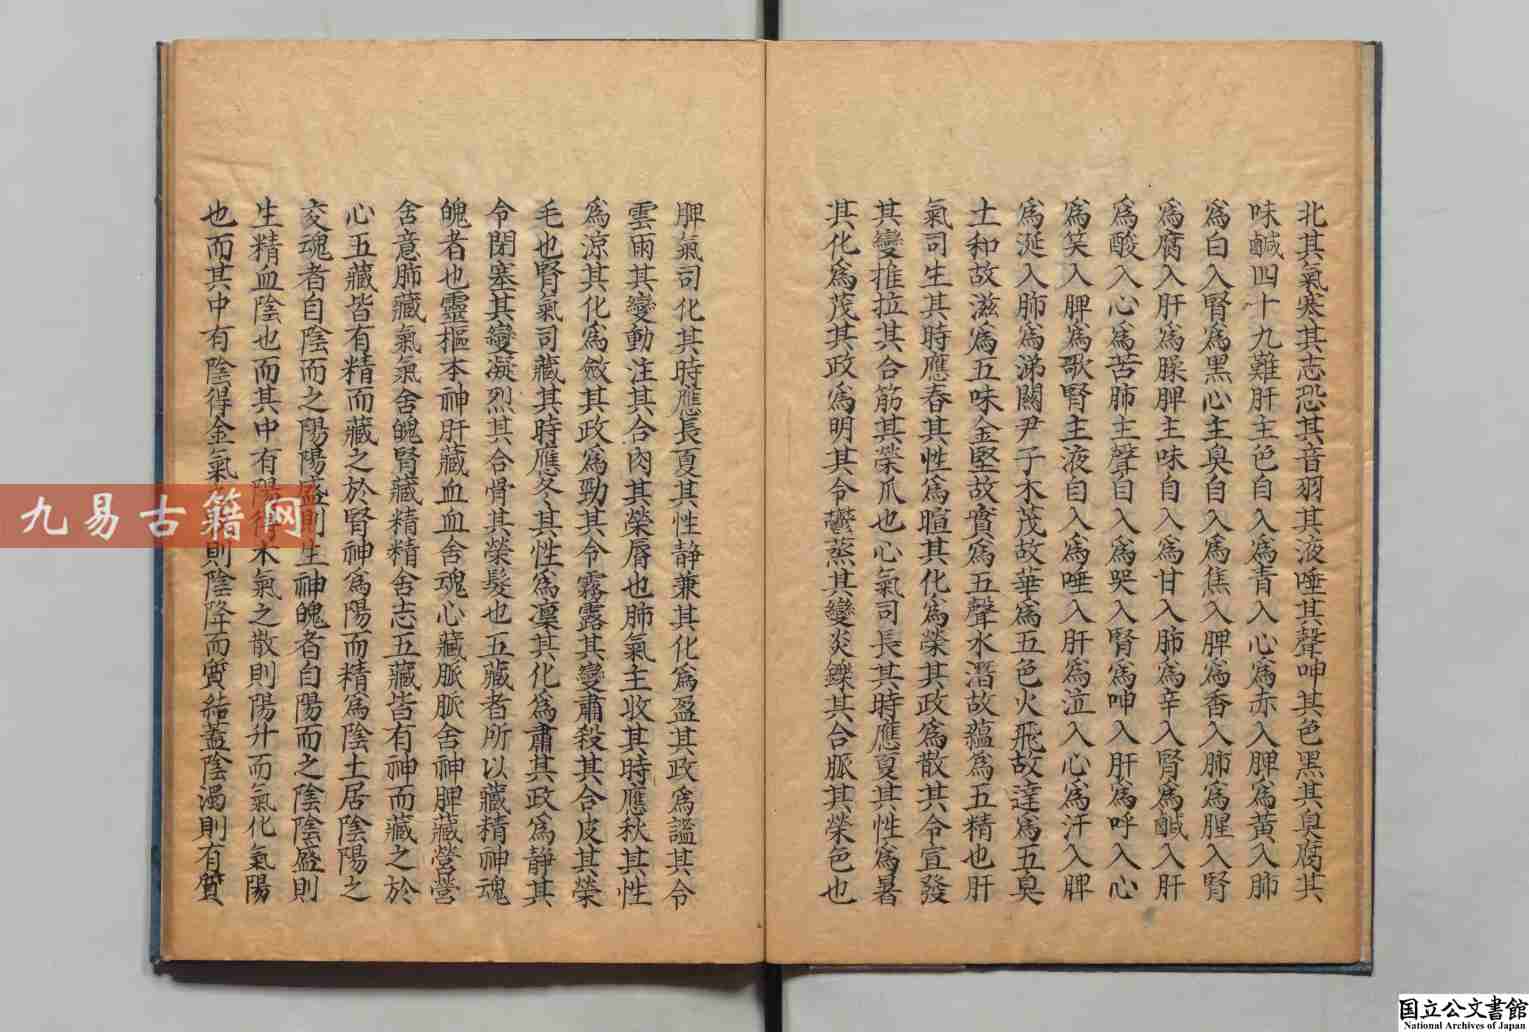 北其氣寒其志恐其音羽其液唾其聲呻其色黑其臭腐其
味鹹四十九難肝主色自入為青入心為赤入脾為黃入肺
為白入腎為黑心主臭自入為焦入脾為香入肺為腥入腎
為腐入肝為臊脾主味自入為甘入肺為辛入腎為鹹入肝
為酸入心為苦肺主聲自入為哭入腎為呻入肝為呼入心
為笑入脾為歌腎主液自入為唾入肝為泣入心為汗入脾
為涎入肺為涕關尹子木茂故華為五色火飛故達為五臭
土和故滋為五味金堅故實為五聲水潛故蘊為五精也肝
氣司生其時應春其性為暄其化為榮其政為散其令宣發
其變摧拉其合筋其榮爪也心氣司長其時應夏其性為暑
其化為茂其政為明其令鬱蒸其變炎鑠其合脈其榮色也
脾氣司化其時應長夏其性靜兼其化為盈其政為謐其令
雲雨其變動注其合肉其榮脣也肺氣主收其時應秋其性
為涼其化為斂其政為勁其令霧露其變肅殺其合皮其榮
毛也腎氣司藏其時應冬其性為凜其化為肅其政為靜其
令閉塞其變凝烈其合骨其榮髮也五藏者所以藏精神魂
魄者也靈樞本神肝藏血血舍魂心藏脈脈舍神脾藏營營
舍意肺藏氣氣舍魄腎藏精精舍志五藏皆有神而藏之於
心五藏皆有精而藏之於腎神為陽而精為陰土居陰陽之
交魂者自陰而之陽陽盛則生神魄者自陽而之陰陰盛則
生精血陰也而其中有陽得木氣之散則陽升而氣化氣陽
也而其中有陰得金氣則陰降而質結蓋陰濁則有質
九易古籍网
国立公文書館
National Archives of Japan